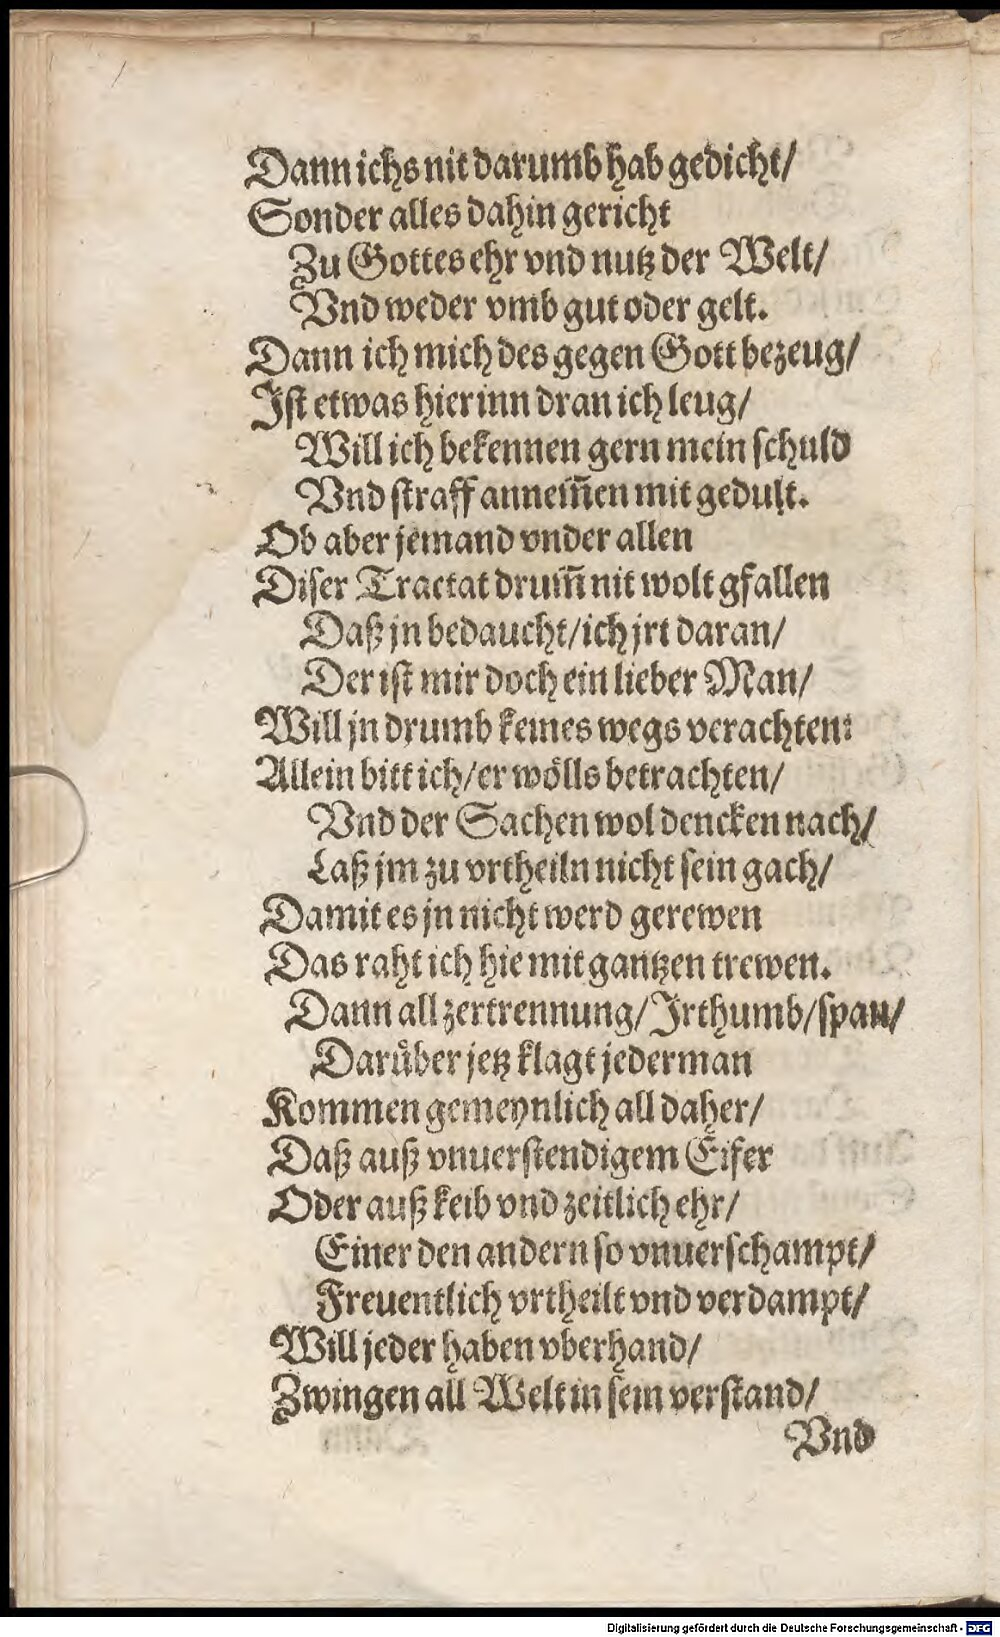 Dann ichs nit darumb hab gedicht/
Sonder alles dahin gericht
Zu Gottes ehr vnd nutz der Welt/
Vnd weder vmb gut oder gelt.
Dann ich mich des gegen Gott bezeug/
Ist etwas hierinn dran ich leug/
Will ich bekennen gern mein schuld
Vnd straff annem̃en mit gedult.
Ob aber jemand vnder allen
Diser Tractat drum̃ nit wolt gfallen
Daß jn bedaucht/ich jrt daran/
Der ist mir doch ein lieber Man/
Will jn drumb keines wegs verachten:
Allein bitt ich/er wölls betrachten/
Vnd der Sachen wol dencken nach/
Laß jm zu vrtheiln nicht sein gach/
Damit es jn nicht werd gerewen
Das raht ich hie mit gantzen trewen.
Dann all zertrennung/Irthumb/span/
Darüber jetz klagt jederman
Kommen gemeynlich all daher/
Daß auß vnuerstendigem Eifer
Oder auß keib vnd zeitlich ehr/
Einer den andern so vnuerschampt/
Freuentlich vrtheilt vnd verdampt/
Will jeder haben vberhand/
Zwingen all Welt in sein verstand/
Vnd
Digitalisierung gefördert durch die Deutsche Forschungsgemeinschaft - DFG